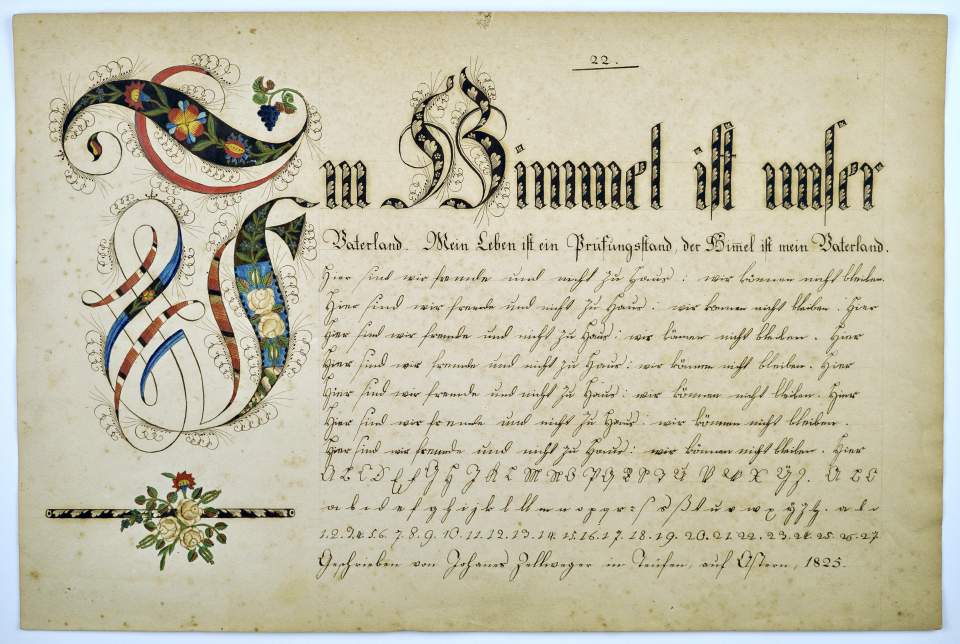 22.
Im Himmel ist unser
Vaterland. Mein Leben ist ein Prüfungsstand, der Him̄el ist mein Vaterland.
Hier sind wir fremde und nicht zu Haus: wir können nicht bleiben.
Hier sind wir fremde und nicht zu Haus: wir könen nicht bleiben. Hier
Hier sind wir fremde und nicht zu Haus: wir könen nicht bleiben. Hier
Hier sind wir fremde und nicht zu Haus: wir könen nicht bleiben. Hier
Hier sind wir fremde und nicht zu Haus: wir können nicht bleiben. Hier
Hier sind wir fremde und nicht zu Haus: wir können nicht bleiben.
Hier sind wir fremde und nicht zu Haus: wir können nicht bleiben. Hier
A B C D E f G H J K L M N O P Q R S T U V W X Y Z. A B C
a b c d e f g h i j k l l m n o p q r s s ß t u v w x y z tz. a b c
1.2.3.4.5.6.7.8.9.10.11.12.13.14.15.16.17.18.19.20.21.22.23.24.25.26.27
Geschrieben von Johanes Zellweger in Teufen, auf Ostern, 1825.